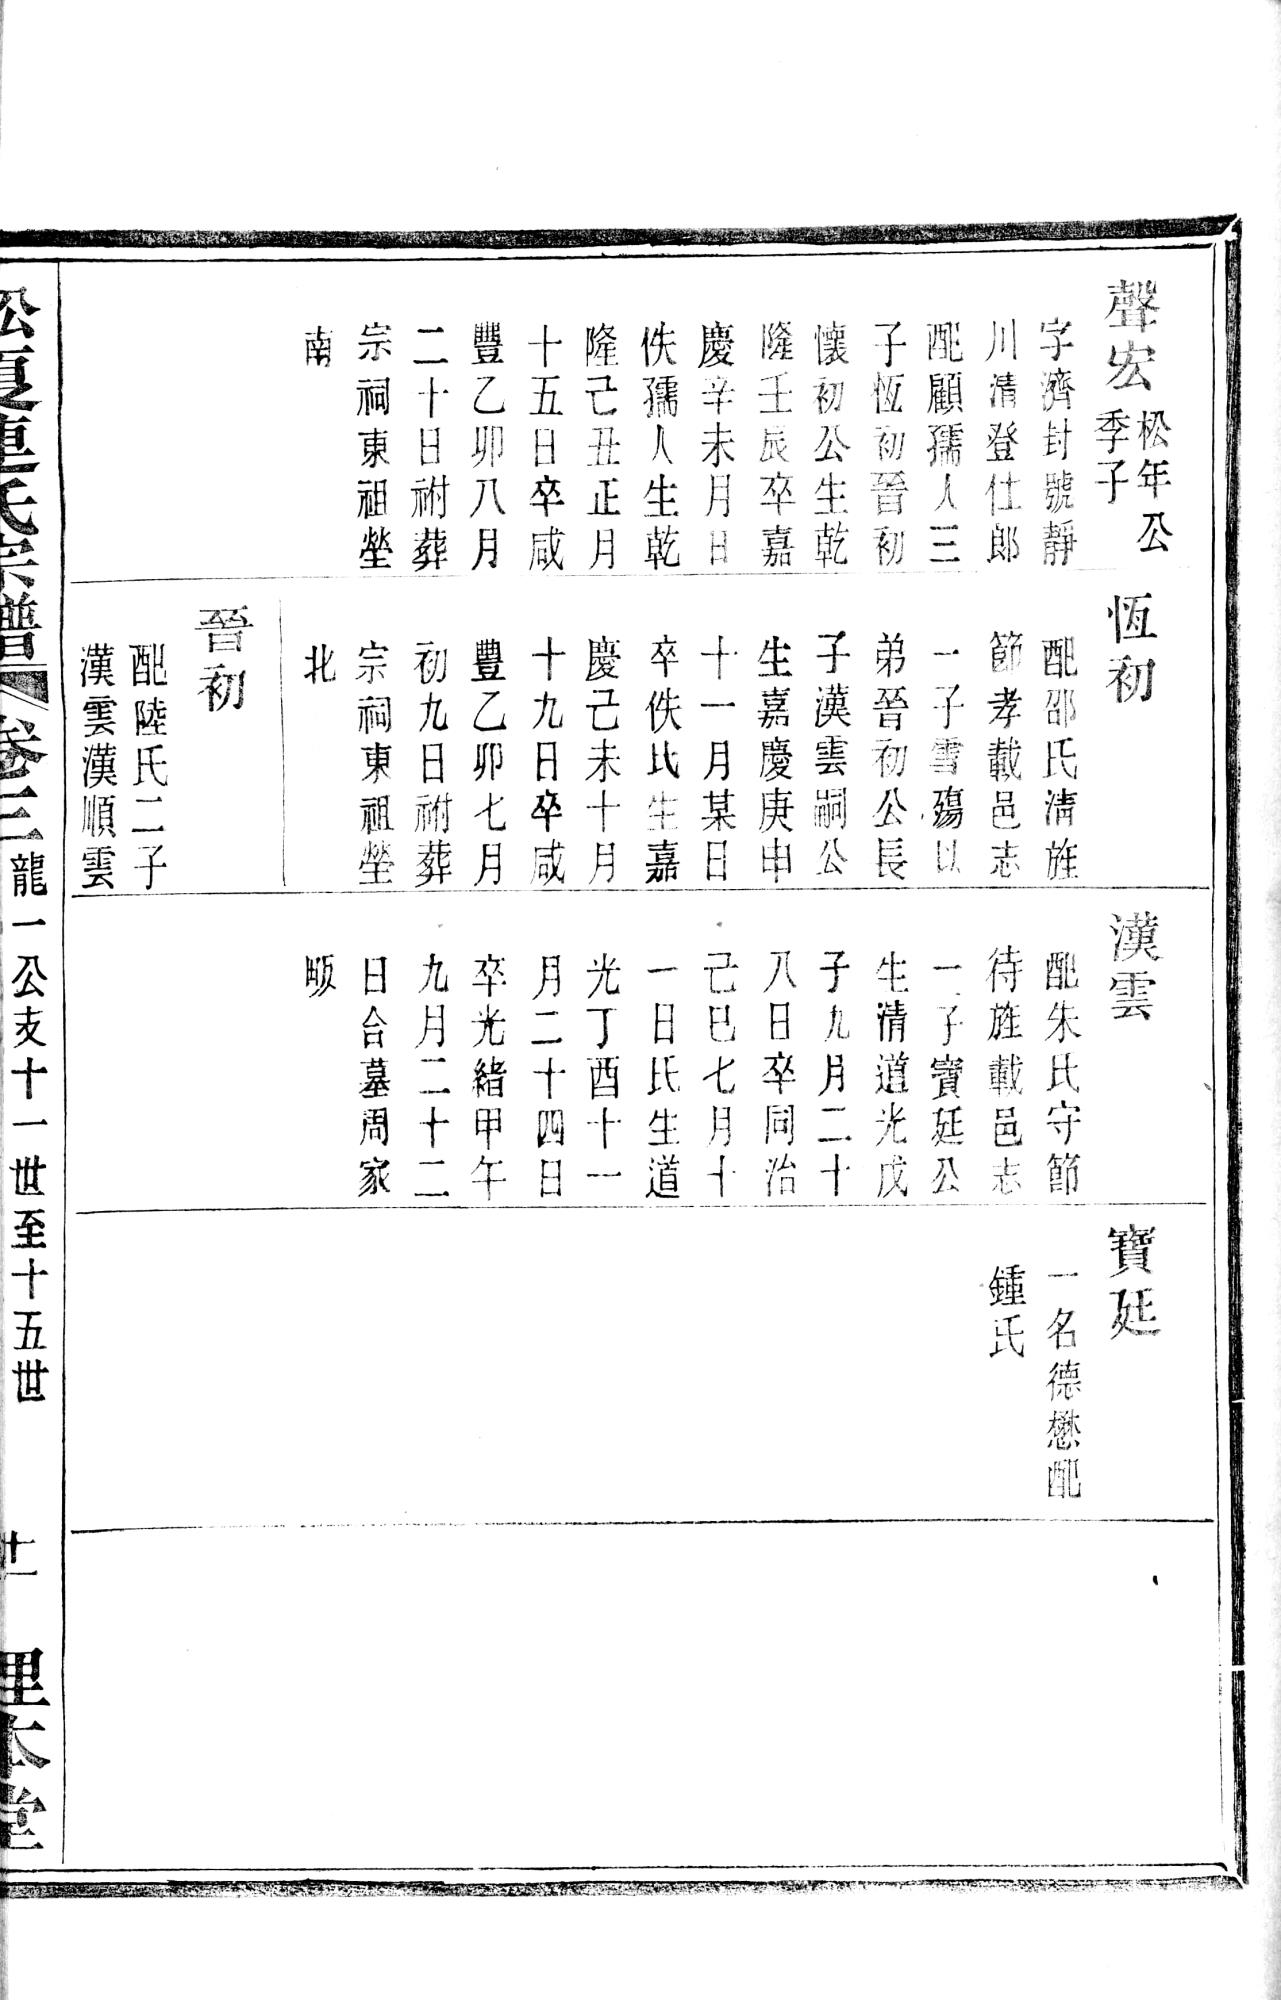 聲宏
松年公
季子
字濟封號靜
川清登仕郎
配顧孺人三
子恆初晉初
懷初公生乾
隆壬辰卒嘉
慶辛未月日
佚孺人生乾
隆己丑正月
十五日卒咸
豐乙卯八月
二十日祔葬
宗祠東祖塋
南
恆初
配邵氏清旌
節孝載邑志
一子雪殤以
弟晉初公長
子漢雲嗣公
生嘉慶庚申
十一月某日
卒佚氏生嘉
慶己未十月
十九日卒咸
豐乙卯七月
初九日祔葬
宗祠東祖塋
北
晉初
配陸氏二子
漢雲漢順雲
漢雲
配朱氏守節
待旌載邑志
一子寶延公
生清道光戊
子九月二十
八日卒同治
己巳七月十
一日氏生道
光丁酉十一
月二十四日
卒光緒甲午
九月二十二
日合墓周家
畈
寶延
一名德懋配
鍾氏
松夏連氏宗譜
卷三
龍一公支十一世至十五世
十一
理本堂